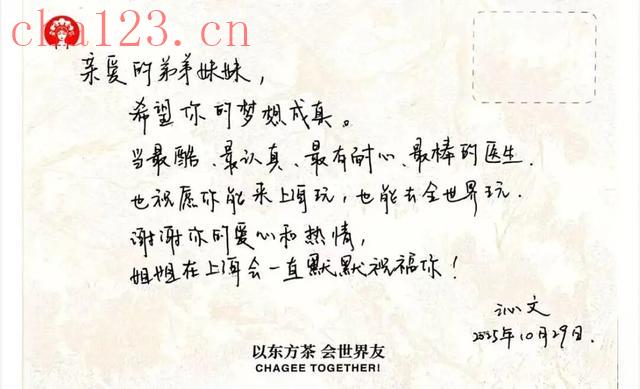 cha123.cn
亲爱的弟弟妹妹，
希望你的梦想成真。
当最酷、最认真、最有耐心、最棒的医生.
也祝愿你能来上海玩，也能去全世界玩.
谢谢你的爱心和热情，
姐姐在上海会一直默默祝福你！
沁文
2025年10月29日.
以东方茶 会世界友
CHAGEE TOGETHER!